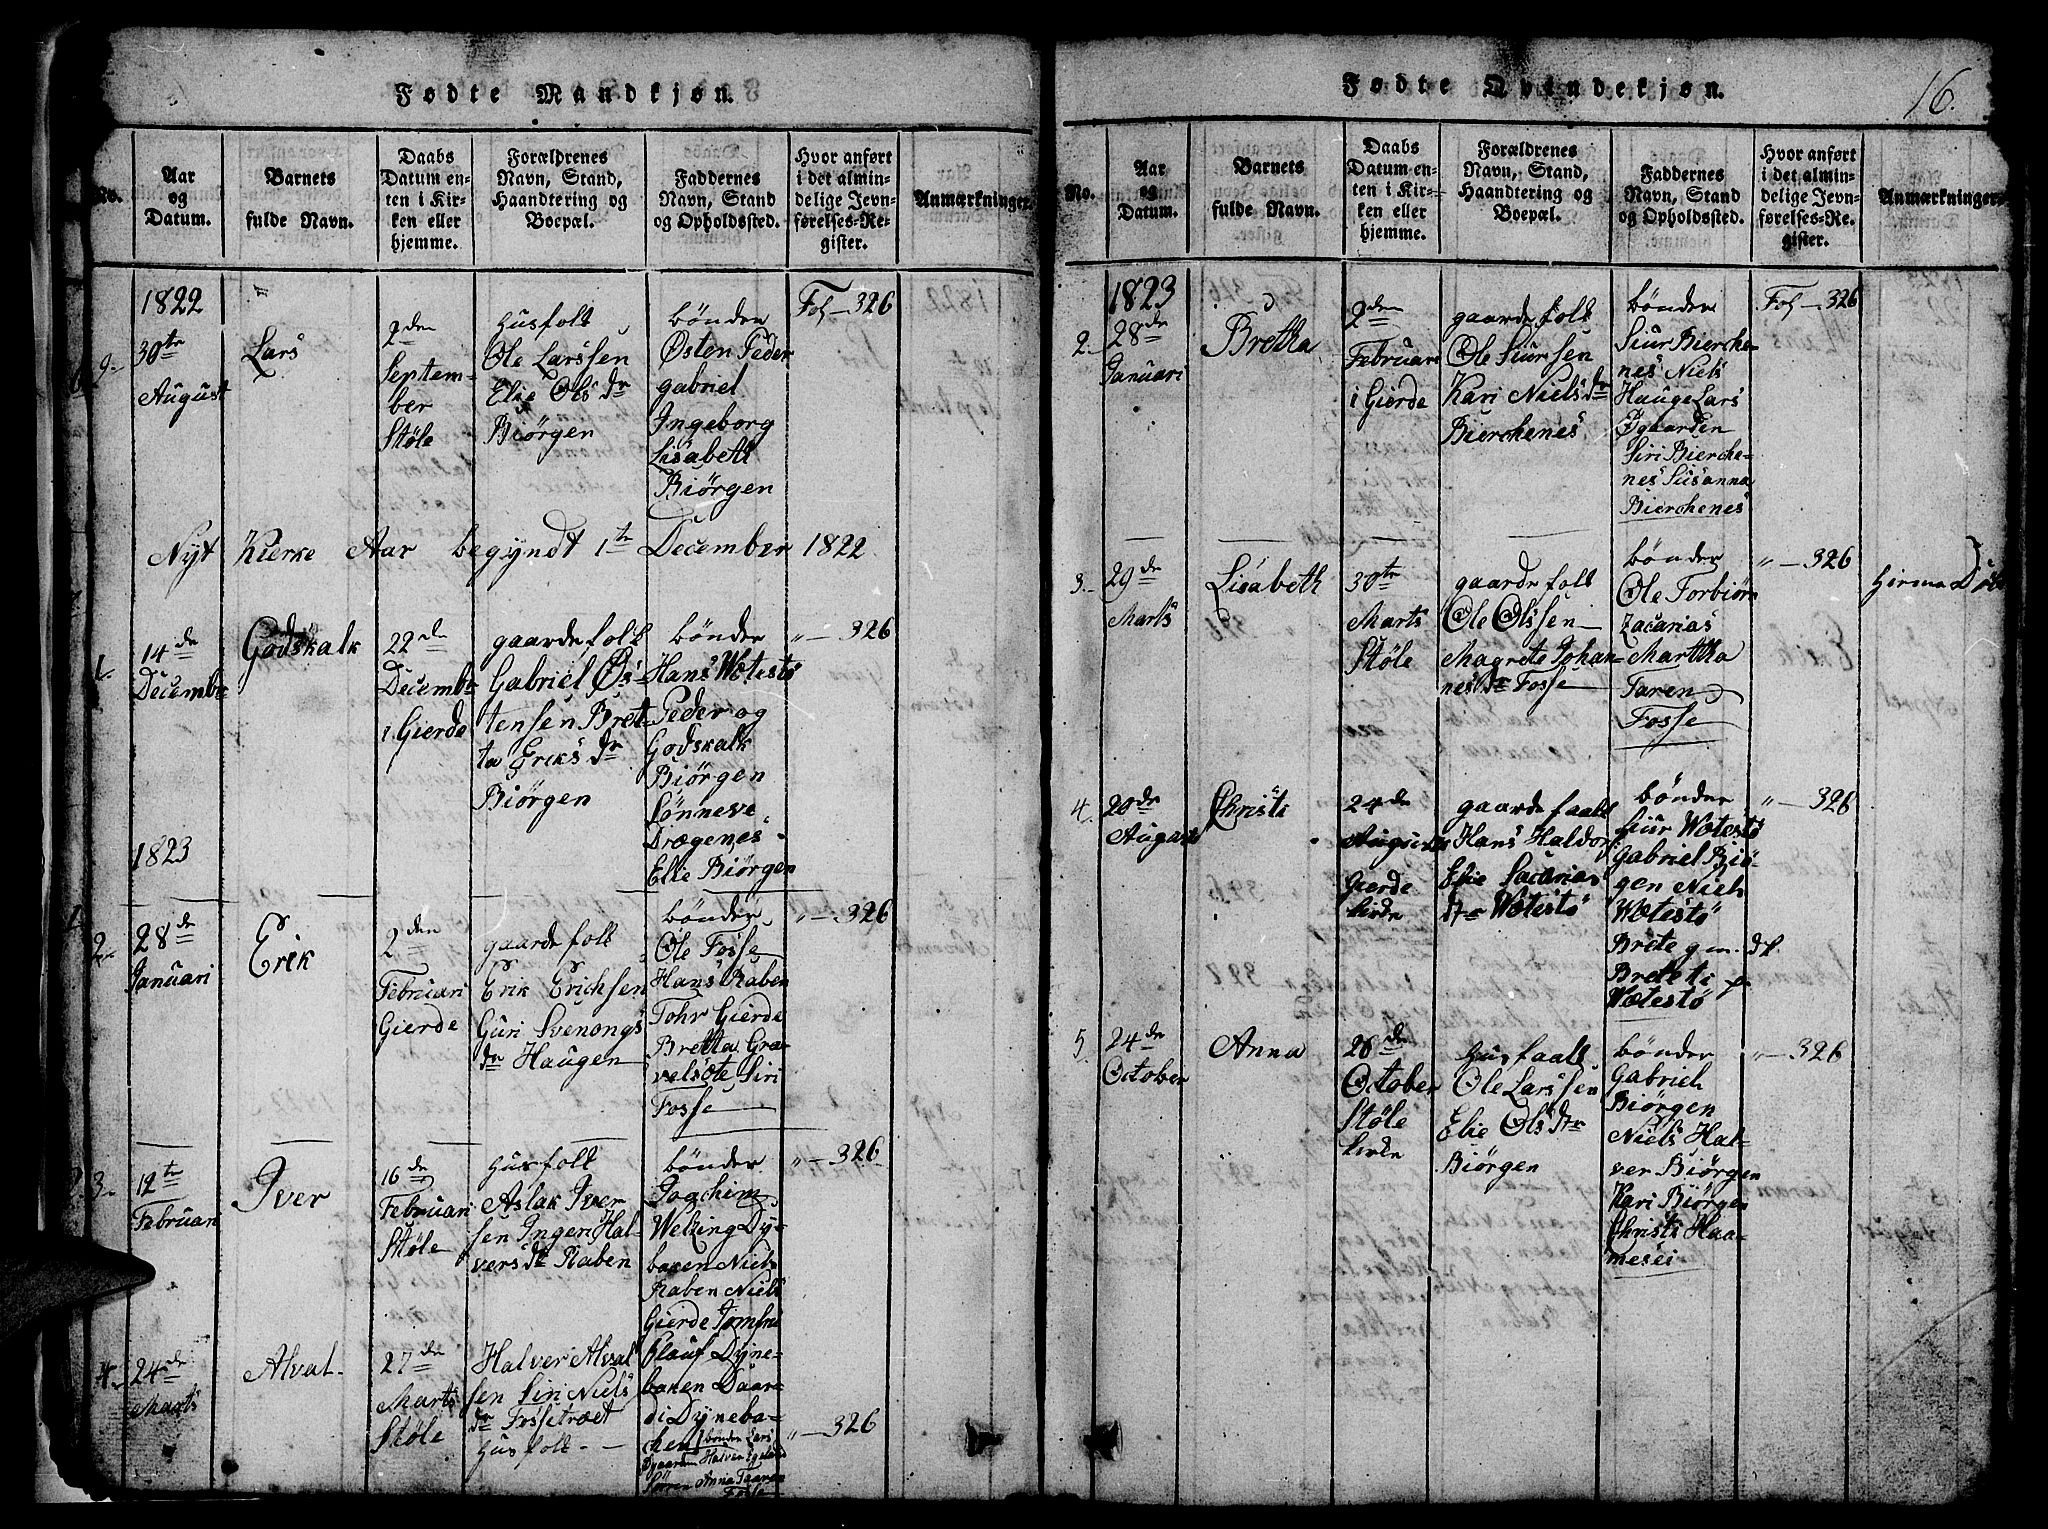 Fødte Mandkjøn.
No.
Aar
og
Datum.
Barnets
fulde Navn.
Daabs
Datum en-
ten i Kir-
ken eller
hjemme.
Forældrenes
Navn, Stand,
Haandtering og
Boepæl.
Faddernes
Navn, Stand
og Opholdssted.
Hvor anført
i det almin-
delige Jevn-
førelses-Re-
gister.
Anmærkninger.
1822
9.
30te
August
Lars
2den
Septem-
ber
Støle
Husfolk
Ole Larssen
Elie Ols dr
Biørgen
bønder
Østen Peder
gabriel
Ingeborg
Lisabeth
Biørgen
Fol - 326
Nyt Kierke Aar begyndt 1te December 1822
1.
14de
Decembr
Godskalk
22de
Decembr
i Gierde
gaardefolk
Gabriel Øs-
tensen Bret-
ta Eriks dr
Biørgen
bønder
Hans Wætestø
Peder og
Godskalk
Biørgen
Lønneve
Drægenes
Elie Biørgen
" - 326
1823
2.
28de
Januari
Erik
2den
Februari
Gierde
gaardefolk
Erik Erichsen
Guri Svenongs
dr Haugen
bønder
Ole Fosse
Hans Raben
Tohr Gierde
Bretta Gra-
velsæte Siri
Fosse
" - 326
3.
12te
Februari
Iver
16de
Februari
Støle
Husfolk
Aslak Iver
sen Inger Hal-
versdr Raben
bønder
Jogchim
Welzing Dy-
baken Niels
Raben Niels
Gierde Jomfru
Plauf Dyne-
baken Daar-
di Dyneba-
chen
" - 326
4.
24de
Marts
Alval
27de
Marts
Støle
Halver Alval
sen Siri Niels
dr Fossetræet
Husfolk
bønder Lars
Øgaarum Halver Egeland
Søren Anna Taaran
Fosse
" - 326
Fødte Qvindekjøn.
16.
No.
Aar
og
Datum.
Barnets
fulde Navn.
Daabs
Datum en-
ten i Kir-
ken eller
hjemme.
Forældrenes
Navn, Stand,
Haandtering og
Boepæl.
Faddernes
Navn, Stand
og Opholdssted.
Hvor anført
i det almin-
delige Jevn-
førelses-Re-
gister.
Anmærkninger.
1823
2.
28de
Januari
Bretha
2den
Februari
i Gierde
gaardefolk
Ole Siursen
Kari Nielsdr
Bierchenes
bønder
Siur Bierche-
nes Niels
Hauge Lars
Øgaarden
Siri Bierche-
nes Susanna
Bierchenes
Fol - 326
3.
29de
Marts
Lisabeth
30te
Marts
Støle
gaardefolk
Ole Olssen
Magrete Johan-
nesdr Fosse
bønder
Ole Torbiørn
Zacarias
Martha
Taren
Fosse
" - 326
Hiema Døbt
4.
20de
August
Christi
24de
August
Gierde
kirke
gaardefaalk
Hans Haldor
Elie Sacarias
dtr Wætestø
bønder
Siur Wætestø
Gabriel Biør-
gen Niels
Wætestø
Brete gm.
Brete ti p
Wætestø
" - 326
5.
24de
October
Anna
26de
October
Støle
kirke
Husfaalk
Ole Larssen
Elie Olsdtr
Biørgen
bønder
Gabriel
Biørgen
Niels Hal-
ver Biørgen
Kari Biørgen
Christi Haa-
mesei
" - 326